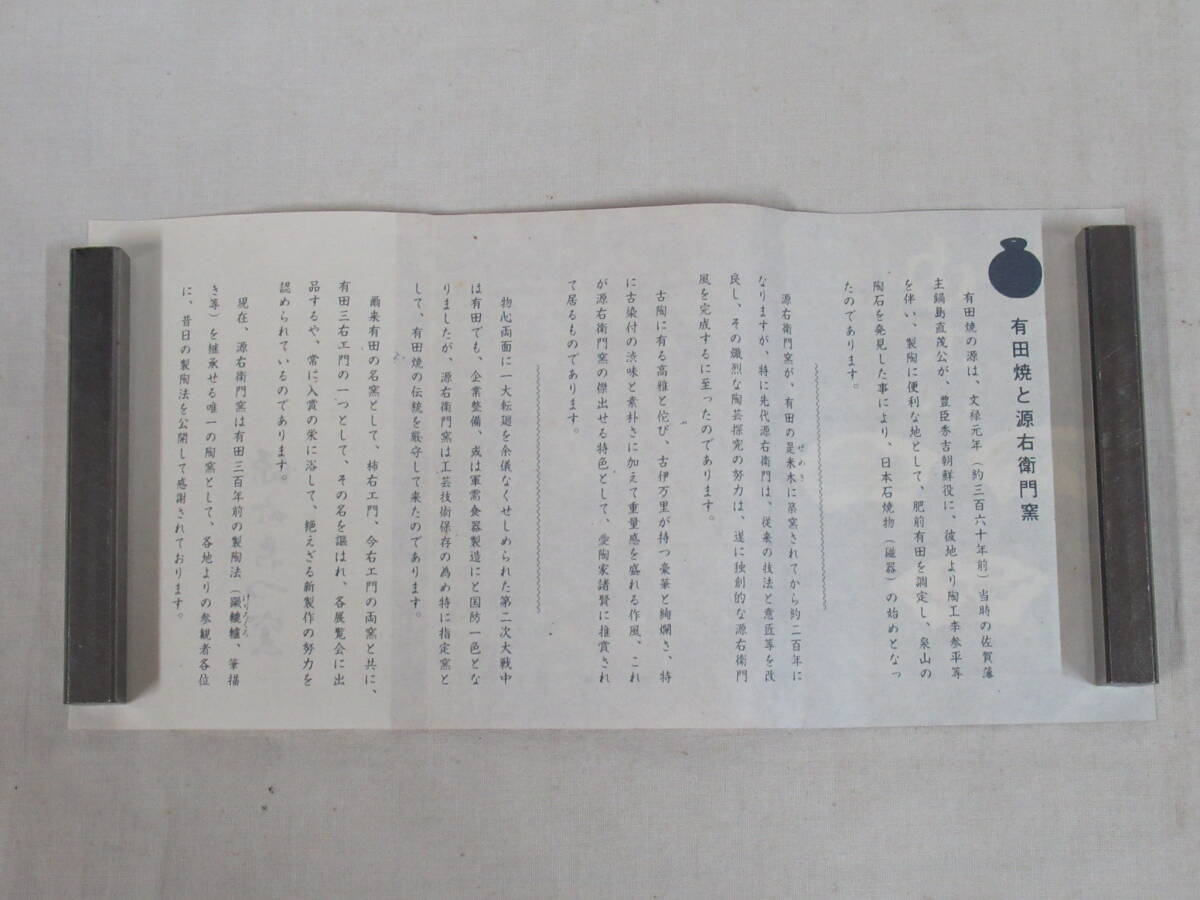 有田焼と源右衛門窯
有田焼の源は、文禄元年（約三百六十年前）当時の佐賀藩
主鍋島直茂公が、豊臣秀吉朝鮮役に、彼地より陶工李参平等
を伴い、製陶に便利な地として、肥前有田を調定し、泉山の
陶石を発見した事により、日本石焼物（磁器）の始めとなっ
たのであります。
源右衛門窯が、有田の是米木に築窯されてから約二百年に
せめき
なりますが、特に先代源右衛門は、従来の技法と意匠等を改
良し、その熾烈な陶芸探究の努力は、遂に独創的な源右衛門
風を完成するに至ったのであります。
古陶に有る高雅と佗び、古伊万里が持つ豪華と絢爛さ、特
に古染付の渋味と素朴さに加えて重量感を盛れる作風、これ
が源右衛門窯の傑出せる特色として、愛陶家諸賢に推賞され
て居るものであります。
物心両面に一大転廻を余儀なくせしめられた第二次大戦中
は有田でも、企業整備、或は軍需食器製造にと国防一色とな
りましたが、源右衛門窯は工芸技術保存の為め特に指定窯と
して、有田焼の伝統を厳守して来たのであります。
爾来有田の名窯として、柿右エ門、今右エ門の両窯と共に、
有田三右エ門の一つとして、その名を謳はれ、各展覧会に出
品するや、常に入賞の栄に浴して、絶えざる新製作の努力を
認められているのであります。
現在、源右衛門窯は有田三百年前の製陶法（蹴轆轤、筆描
けりろくろ
き等）を継承せる唯一の陶窯として、各地よりの参観者各位
に、昔日の製陶法を公開して感謝されております。